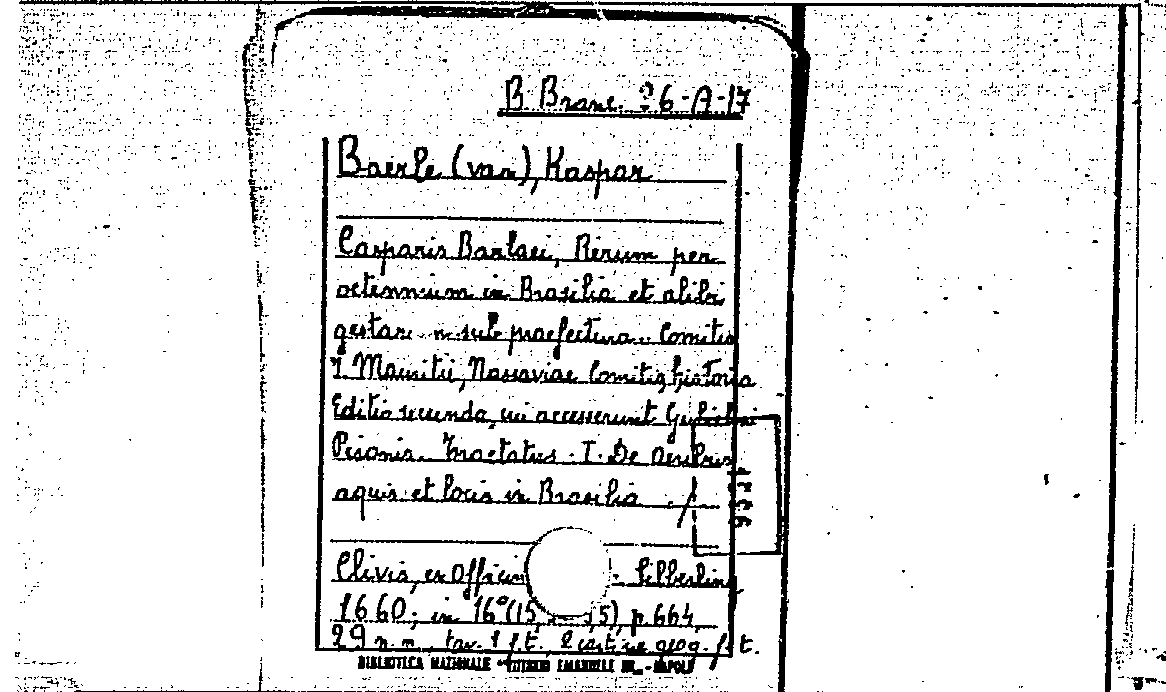 B. Branc. 26-A-17
Baerle (van), Kaspar
Casparis Barlaei, Rerum per
octennium in Brasilia et alibi
gestarum sub praefectura Comitis
I. Mauritii, Nassaviae Comitis, historia
Editio secunda, cui accesserunt Gulielmi
Pisonis Tractatus. I. De aeribus
aquis et locis in Brasilia ./.
Clivis, ex Officin Silberling
1660; in 16° (15, 5), p. 664,
29 n. n., tav. 1 f. t., 2 carte geog. f. t.
BIBLIOTECA NAZIONALE "VITTORIO EMANUELE III" - NAPOLI